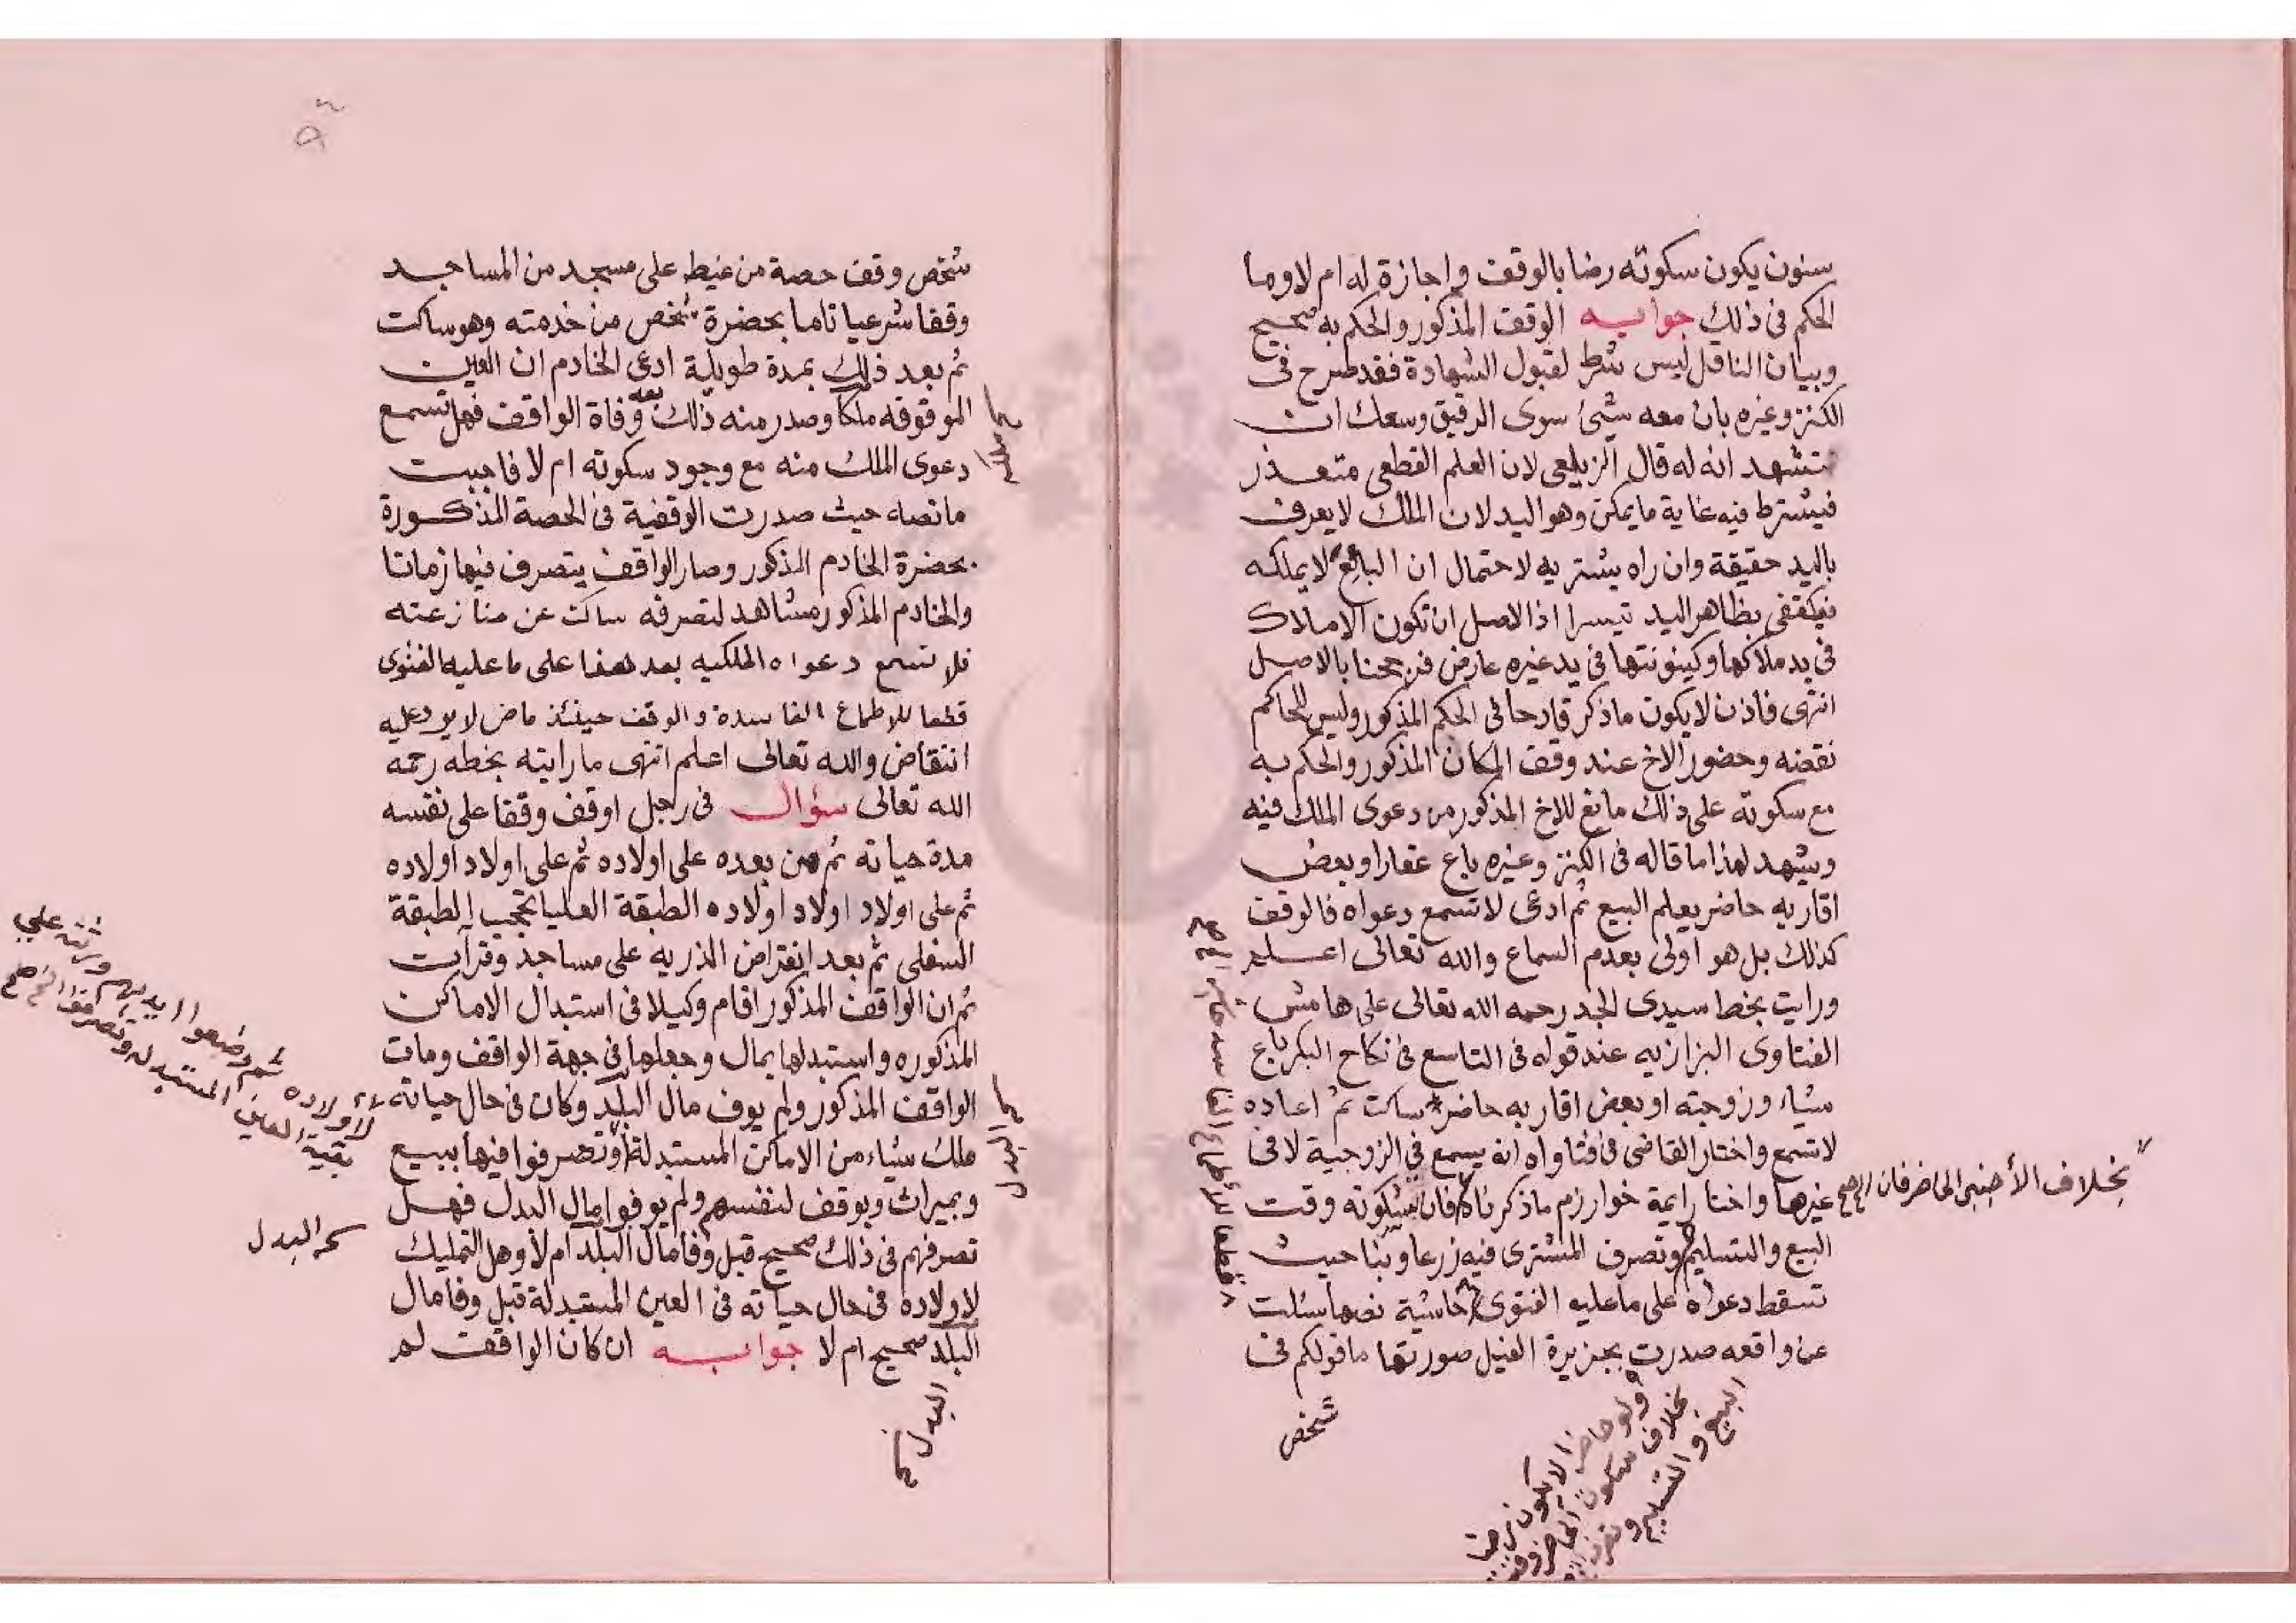 سنون يكون سكوته رضا بالوقف واجازة له ام لا وما
الحكم في ذلك جوابه الوقف المذكور والحكم به صحيح
وبيان الناقل ليس شرط لقبول الشهادة فقد صرح في
الكنز وغيره بان معه شئ سوى الرقيق وسعك ان
تشهد انه له قال الزيلعي لان العلم القطعي متعذر
فيشترط فيه غاية ما يمكن وهو اليد لان الملك لا يعرف
باليد حقيقة وان راه يشتريه لاحتمال ان البائع لا يملكه
فيكتفى بظاهر اليد تيسرا اذ الاصل ان تكون الاملاك
في يد ملاكها وكينونتها في يد غيره عارض فرجحنا بالاصل
انتهى فاذن لا يكون ما ذكر قادحا في الحكم المذكور وليس للحاكم
نقضه وحضور الاخ عند وقف المكان المذكور والحكم به
مع سكوته على ذلك مانع للاخ المذكور من دعوى الملك فيه
ويشهد لهذا ما قاله في الكنز وغيره باع عقارا وبعض
اقاربه حاضر يعلم البيع ثم ادعى لا تسمع دعواه فالوقف
كذلك بل هو اولى بعدم السماع والله تعالى اعلم
ورايت بخط سيدي الجد رحمه الله تعالى على هامش
الفتاوى البزازيه عند قوله في التاسع في نكاح البكر باع
شياء وزوجته او بعض اقاربه حاضر ساكت ثم اعاده
لا تسمع واختار القاضي في فتاواه انه يسمع في الزوجية لا في
غيرها واختار ايمة خوارزم ما ذكرناه فان سكوته وقت
البيع والتسليم وتصرف المشترى فيه زرعا وبنا حيث
تسقط دعواه على ما عليه الفتوى حاشية نصها سئلت
عن واقعه صدرت بجزيرة الفيل صورتها ما قولكم في
شخص
بخلاف الأجنبي الحاضر فان
قطعا للأطماع الفاسده
ولو حاضرا لا يكون رضا
بخلاف سكون الحاضر وقت
البيع والتسليم و
شخص وقف حصة من غيط على مسجد من المساجد
وقفا شرعيا تاما بحضرة شخص من خدمته وهو ساكت
ثم بعد ذلك بمدة طويلة ادعى الخادم ان العين
الموقوفه ملكا وصدر منه ذلك بعد وفاة الواقف فهل تسمع
دعوى الملك منه مع وجود سكوته ام لا فاجبت
ما نصه حيث صدرت الوقفية في الحصة المذكورة
بحضرة الخادم المذكور وصار الواقف يتصرف فيها زمانا
والخادم المذكور مشاهد لتصرفه ساكت عن منازعته
فلا تسمع دعواه الملكيه بعد هذا على ما عليه الفتوى
قطعا للاطماع الفاسدة والوقف حينئذ ماض لا يرد عليه
انتقاض والله تعالى اعلم انتهى ما رايته بخطه رحمه
الله تعالى سؤال في رجل اوقف وقفا على نفسه
مدة حياته ثم من بعده على اولاده ثم على اولاد اولاده
ثم على اولاد اولاد اولاده الطبقة العليا تحجب الطبقة
السفلى ثم بعد انقراض الذريه على مساجد وقرآيت
ثم ان الواقف المذكور اقام وكيلا في استبدال الاماكن
المذكوره واستبدلها بمال وجعلها في جهة الواقف ومات
الواقف المذكور ولم يوف مال البلد وكان في حال حياته
ملك شياء من الاماكن المستبدلة وتصرفوا فيها ببيع
وبميراث وبوقف لنفسهم ولم يوفوا مال البدل فهل
تصرفهم في ذلك صحيح قبل وفا مال البلد ام لا وهل التمليك
لاولاده في حال حياته في العين المستبدلة قبل وفا مال
البلد صحيح ام لا جوابه ان كان الواقف لم
لأولاده ثم وضعوا ايديهم ورثته علي
بقية العين المستبدله وتصرفوا
البدل
البدل
البدل